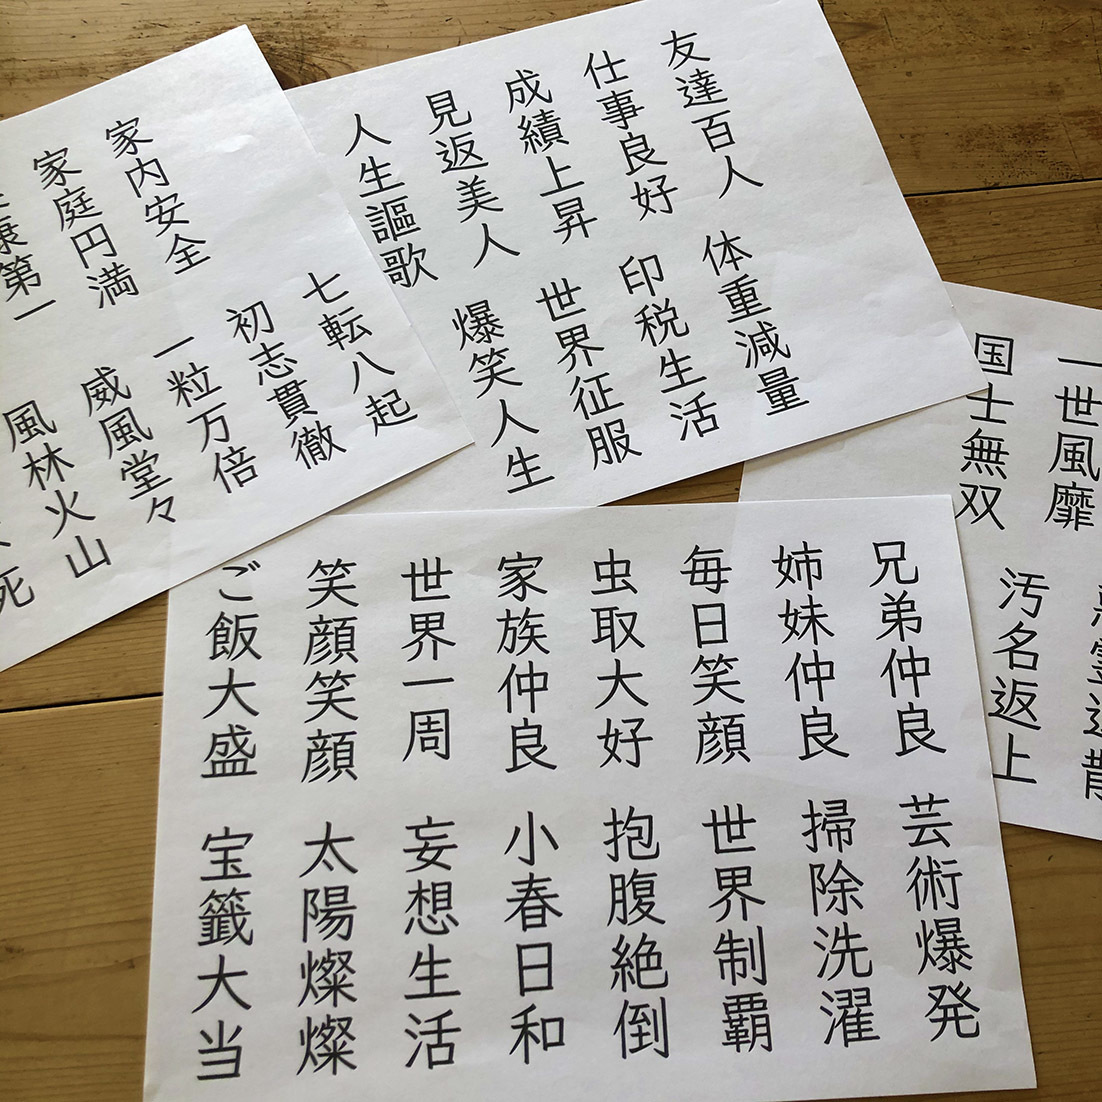 家内安全
家庭円満
康第一
七転八起
初志貫徹
一粒万倍
威風堂々
風林火山
死
友達百人
仕事良好
成績上昇
見返美人
人生謳歌
体重減量
印税生活
世界征服
爆笑人生
一世風靡
国士無双
汚名返上
兄弟仲良
姉妹仲良
毎日笑顔
虫取大好
家族仲良
世界一周
笑顔笑顔
ご飯大盛
芸術爆発
掃除洗濯
世界制覇
抱腹絶倒
小春日和
妄想生活
太陽燦燦
宝籤大当